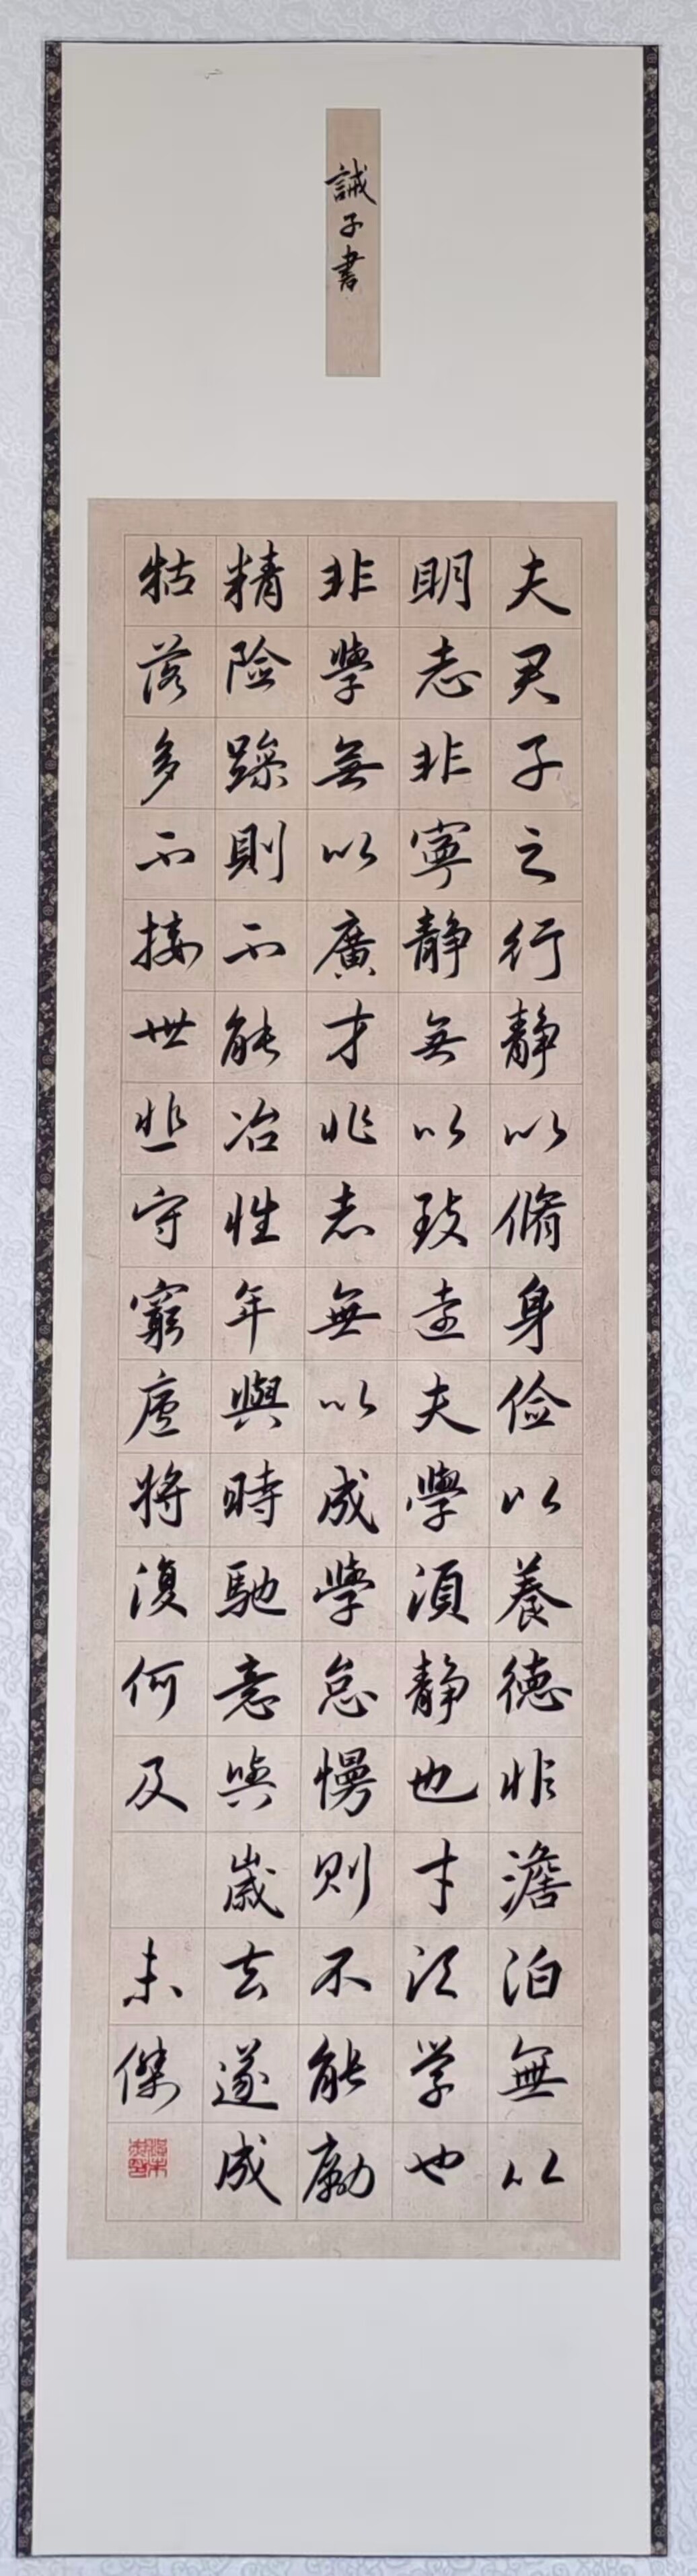 誡子書
夫君子之行静以脩身俭以養德非澹泊無以
明志非寧静無以致遠夫學須静也才須学也
非學無以廣才非志無以成學怠慢则不能勵
精险躁則不能冶性年與時馳意與歲去遂成
枯落多不接世悲守窮廬將復何及
未傑